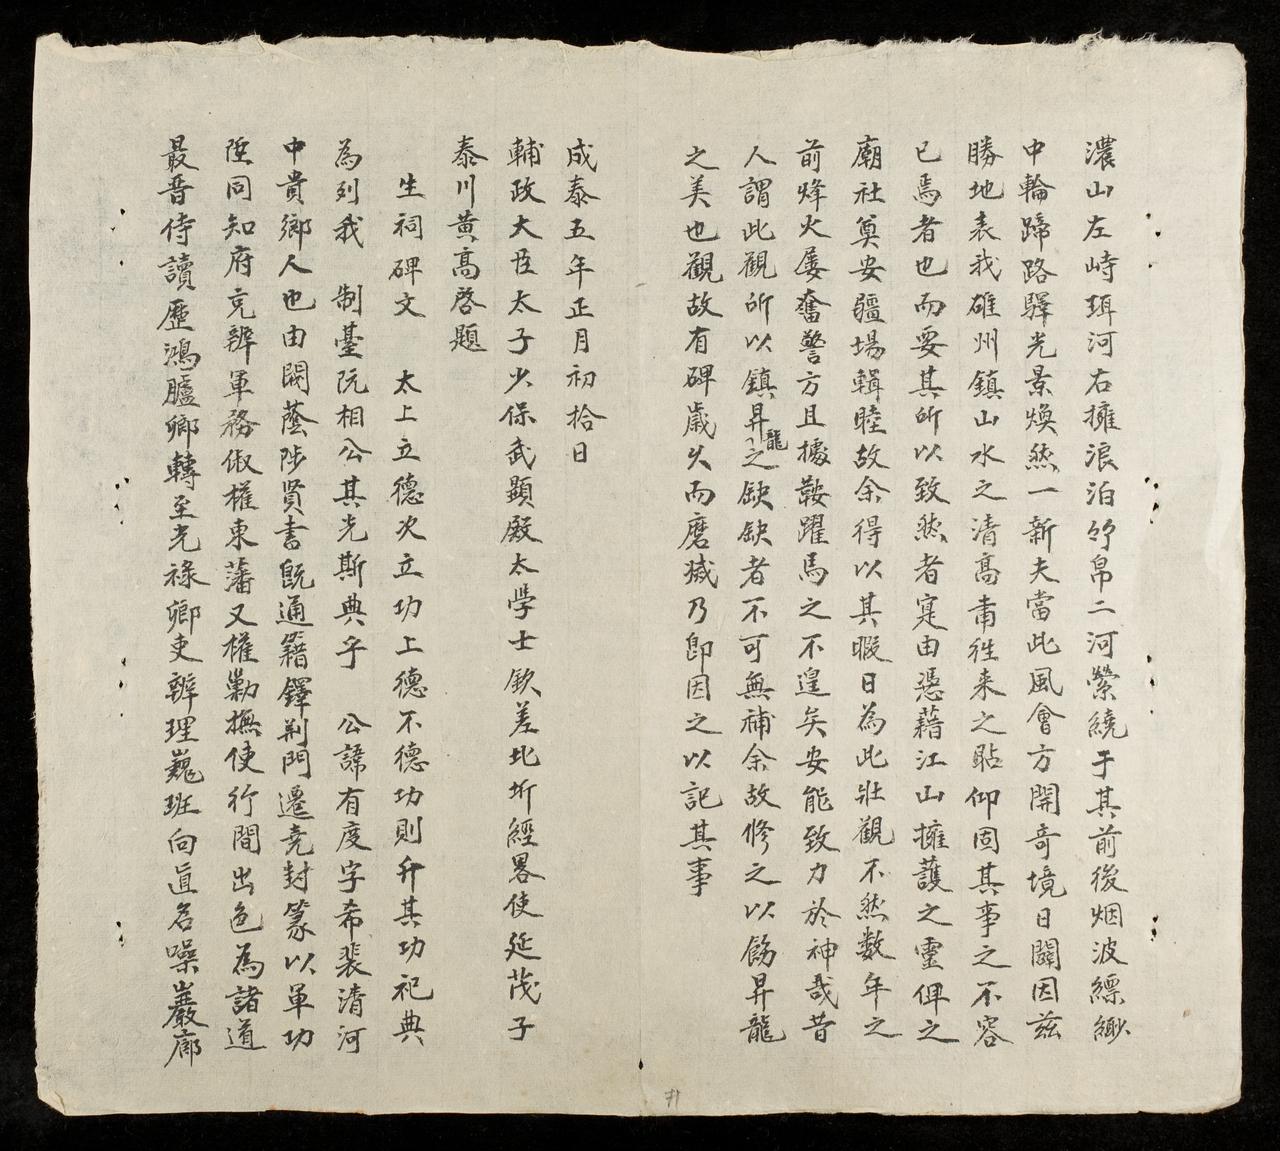 濃山左峙珥河右擁浪泊竹帛二河縈繞于其前後烟波縹緲
中輪蹄路驛光景煥然一新夫當此風會方開奇境日闢因茲
勝地表我雄州鎮山水之清高肅往来之瞻仰固其事之不容
已焉者也而要其所以致然者寔由憑藉江山擁護之靈俾之
廟社奠安疆場輯睦故余得以其暇日為此壯觀不然数年之
前烽火屡奮警方且據鞍躍馬之不遑矣安能致力於神哉昔
人謂此觀所以鎮昇龍之缺缺者不可無補余故修之以餙昇龍
之美也觀故有碑歲久而磨㓕乃即因之以記其事
成泰五年正月初拾日
輔政大臣太子少保武顯殿大學士欽差北圻經畧使延茂子
泰川黄高啓題
生祠碑文 太上立德次立功上德不德功則升其功祀典
為列我 制臺阮相公其光斯典乎 公諱有度字希裴清河
中貴鄉人也由閥蔭陟賢書既通籍鐸荆門遷堯封篆以軍功
陞同知府充辦軍務俶權東藩又權勦撫使行間出色為諸道
最晋侍讀歷鴻臚卿轉至光祿卿吏辦理巍班向直名噪巖廊